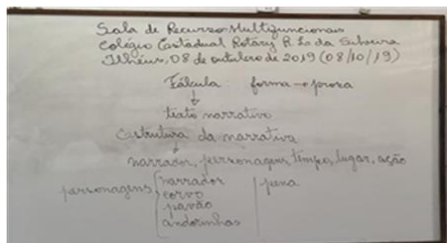 Sala de Recurso Multifuncionais
Colégio Estadual Rotary R. L. da Silveira
Ilhéus, 08 de outubro de 2019 (08/10/19)
Fábula forma → prosa
↓
texto narrativo
Estrutura da narrativa
↓
narrador, personagens, tempo, lugar, ação
personagens { narrador | pena
corvo
pavão
andorinhas